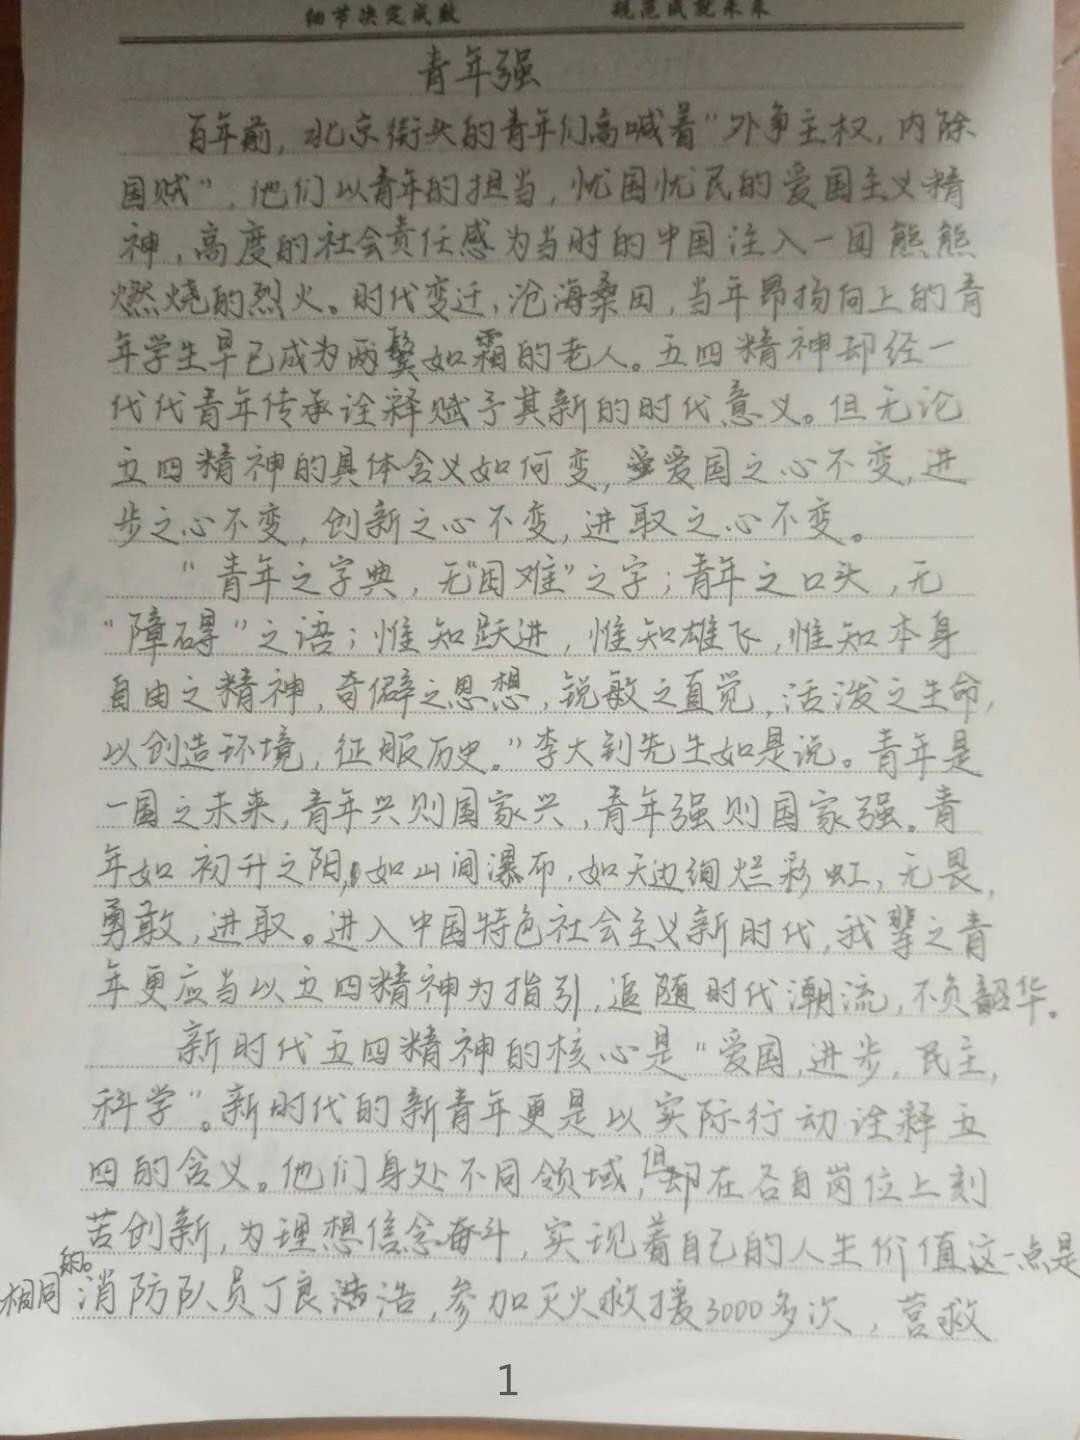 细节决定成败 规范成就未来
青年强
百年前，北京街头的青年们高喊着“外争主权，内除
国贼”，他们以青年的担当，忧国忧民的爱国主义精
神，高度的社会责任感为当时的中国注入一团熊熊
燃烧的烈火。时代变迁，沧海桑田，当年昂扬向上的青
年学生早已成为两鬓如霜的老人。五四精神却经一
代代青年传承诠释赋予其新的时代意义。但无论
五四精神的具体含义如何变，爱国之心不变，进
步之心不变，创新之心不变，进取之心不变。
“青年之字典，无“困难”之字；青年之口头，无
“障碍”之语；惟知跃进，惟知雄飞，惟知本身
自由之精神，奇僻之思想，锐敏之直觉，活泼之生命，
以创造环境，征服历史。”李大钊先生如是说。青年是
一国之未来，青年兴则国家兴，青年强则国家强。青
年如初升之阳，如山间瀑布，如天边绚烂彩虹，无畏，
勇敢，进取。进入中国特色社会主义新时代，我辈之青
年更应当以五四精神为指引，追随时代潮流，不负韶华。
新时代五四精神的核心是“爱国，进步，民主，
科学”。新时代的新青年更是以实际行动诠释五
四的含义。他们身处不同领域，但却在各自岗位上刻
苦创新，为理想信念奋斗，实现着自己的人生价值这一点是
相同的。消防队员丁良浩，参加灭火救援3000多次，营救
1